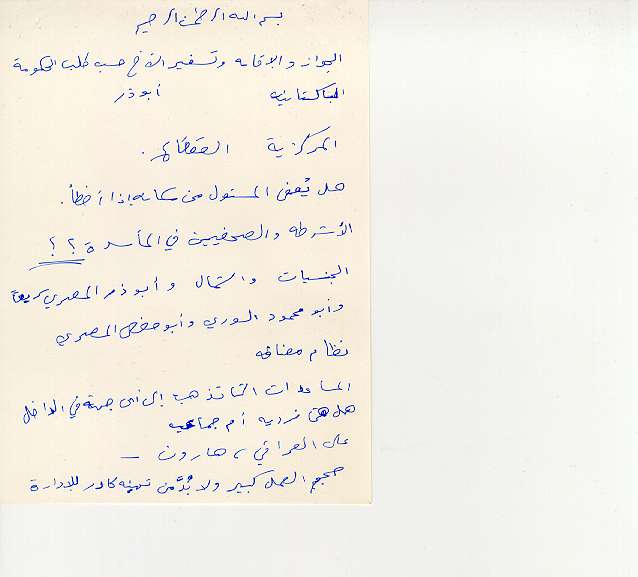 بسم الله الرحمن الرحيم
الجواز والاقامه وتسفير الاخ حسب طلب الحكومة
الباكستانيه أبوذر
المركزية
هل يُعفى المسئول من مكانه إذا أخطأ.
الأشرطه والصحفيين في المأسدة ؟؟
الجنسيات والشمال وأبوذر المصري
وأبو محمود السوري وأبو حفص المصري
نظام
المساعدات التي تذهب إلى أى جهة في الداخل
هل هى فرديه أم جماعيه
على العراقي، هارون —
حجم العمل كبير ولا بُدَّ من كادر للإدارة